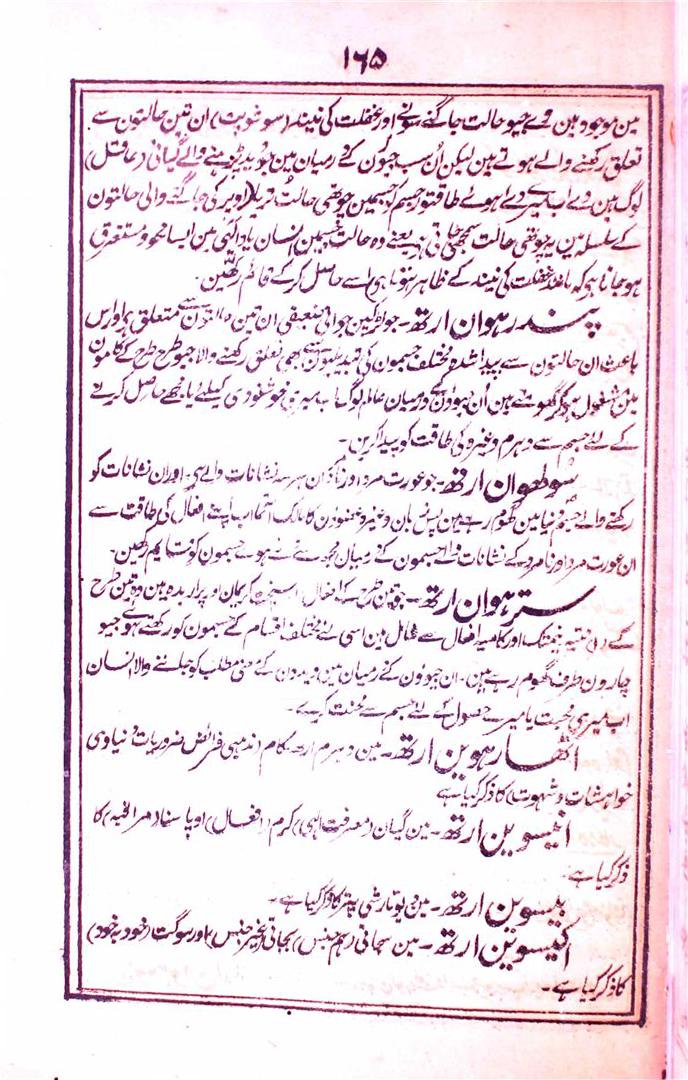 ۱۶۵
مین موجود ہین وے جیو حالت جاگنے سونے اور غفلت کی نیند (سوشوپت) ان تین حالتون سے
تعلق رکھنے والے ہوتے ہین لیکن اُن سب جیون کے درمیان مین جو وید پڑھنے والے گیانی (عاقل)
لوگ ہین وے اب میرے دے ہوئے طاقتور جسم کو جسمین چوتھی حالت تُریا (اوپر کی جاگنے والی حالتون
کے سلسلہ مین یہ چوتھی حالت سمجھی جاتی ہے یعنے وہ حالت جسمین انسان یاد الٰہی مین ایسا محو و مستغرق
ہو جاتا ہو کہ مانند غفلت کی نیند کے ظاہر ہو تو) ہے اسے حاصل کر کے قائم رکھین۔
پندرہوان ارتھ۔ جو لڑکپن جوانی ضعیفی ان تین حالتون سے متعلق ہو اور اس
باعث ان حالتون سے پیدا شدہ مختلف جسمون کی تبدیلیون سے بھی تعلق رکھنے والا جیو طرح طرح کے کامون
مین مشغول ہو کر گھومتے ہین اُن جیوون کے درمیان عالم لوگ اب میری خوشنودی کیلئے یا مجھے حاصل کرنے
کے لئے جسم سے دہرم وغیرہ کی طاقت کو پیدا کرین۔
سولھوان ارتھ۔ جو عورت مرد اور نامرد ان ہر سہ نشانات والے ہی۔ اور ان نشانات کو
رکھنے والے جسم دنیا مین گھوم رہے ہین پس پران وغیرہ عضوون کا مالک آتما اب اپنے افعال کی طاقت سے
ان عورت مرد اور نامرد کے نشانات والے جسمون کے درمیان مجھ سے بنے ہوے جسمون کو قایم رکھین۔
سترہوان ارتھ۔ جو تین طرح کے افعال سنچت کریمان اور پراربدہ ہین وہ تین طرح
کے نتیہ نیمتک اور کامیہ افعال سے شامل ہین اسی لئے مختلف اقسام کے جسمون کو رکھتے ہوئے جیو
چارون طرف گھوم رہے ہین۔ ان جیوون کے درمیان مین ویدون کے معنی مطلب کو جاننے والا انسان
اب میری محبت یا میرے حصول کے لئے جسم سے محنت کرے۔
اٹھارہوین ارتھ۔ مین دہرم ارتھ کام (مذہبی فرائض ضروریات دنیاوی
خواہشات و شہوت) کا ذکر کیا ہے
اُنیسوین ارتھ۔ مین گیان (معرفت الٰہی) کرم (افعال) اوپاسنا (مراقبہ) کا
ذکر کیا ہے۔
بیسوین ارتھ۔ مین دیوتا رشی پتر کا ذکر کیا ہے۔
اکیسوین ارتھ۔ مین سجاتی (ہم جنس) بجاتی (غیر جنس) اور سوگت (خود بہ خود)
کا ذکر کیا ہے۔